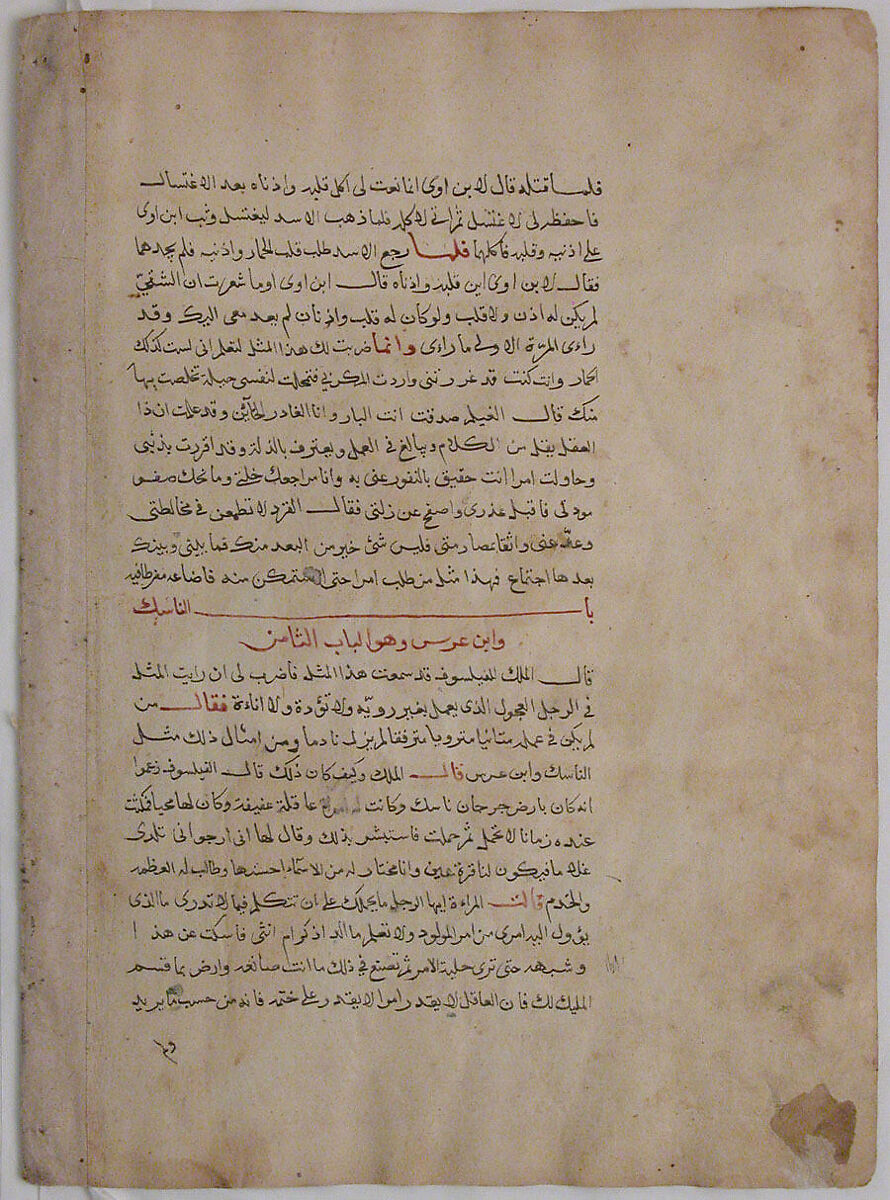 فلما قتله قال لابن اوى انما نعت لى اكل قلبه واذناه بعد الاغتسال
فاحفظه لى لاغتسل ثم اتى لاكله فلما ذهب الاسد ليغتسل وثب ابن اوى
على اذنيه وقلبه فاكلها فلما رجع الاسد طلب قلب الحمار واذنيه فلم يجدهما
فقال لابن اوى اين قلبه واذناه قال ابن اوى اوما شعرت ان الشقى
لم يكن له اذن ولا قلب ولو كان له قلب واذنان لم يعد معى اليك وقد
راءى المرة الاولى ما راءى وانما ضربت لك هذا المثل لتعلم انى لست كذلك
الحمار وانت كنت قد غررتنى واردت المكر بى فتمحلت لنفسى حيلة تخلصت بها
منك قال الغيلم صدقت انت البار وانا الغادر الخائن وقد علمت ان ذا
العقل يقل من الكلام ويبالغ فى العمل ويعترف بالذلة وقد اقررت بذنبى
وحاولت امرا انت حقيق بالنفور عنى به وانا مراجعك خلتى وما نحك صفو
مودتى فاقبل عذرى واصفح عن زلتى فقال القرد لا تطمعن فى مخالطتى
وعد عنى واثقا بصارمتى فليس شئ خير من البعد منك فما بينى وبينك
بعدها اجتماع فهذا مثل من طلب امرا حتى استمكن منه فاضاعه مفرطا فيه
باب الناسك
وابن عرس وهو الباب الثامن
قال الملك للفيلسوف قد سمعت هذا المثل فاضرب لى ان رايت المثل
فى الرجل العجول الذى يعمل بغير روية ولا تؤدة ولا اناءة فقال من
لم يكن فى عمله متانيا مترويا مترفقا لم يزل نادما ومن امثال ذلك مثل
الناسك وابن عرس قال الملك وكيف كان ذلك قال الفيلسوف زعموا
انه كان بارض جرجان ناسك وكانت له امراة عاقلة عفيفة وكان لها محبا فمكثت
عنده زمانا لا تحمل ثم حملت فاستبشر بذلك وقال لها انى ارجو انى تلدى
غلاما فيكون لنا قرة عين وانا مختار له من الاسماء احسنها وطالب له
والخدم قالت المراءة ايها الرجل ما يحملك على ان تتكلم فيما لا تدرى ما الذى
يؤول اليه امرى من امر المولود ولا تعلم ما الد اذكر ام انثى فاسكت عن هذا
وشبهه حتى ترى جلية الامر ثم تصنع فى ذلك ما انت صانعه وارض بما قسم
المليك لك فان العاقل لا يقدر امرا لا يقدر على ختمه فانه من حسب ما يريد